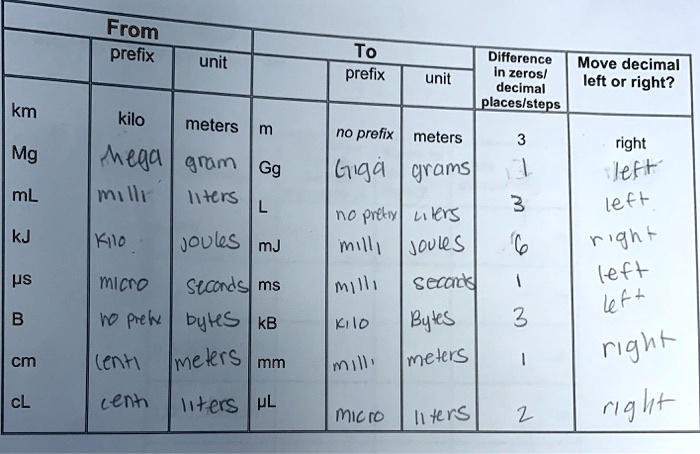 From To
prefix unit prefix unit Difference in zeros/ decimal places/steps Move decimal left or right?
km kilo meters m no prefix meters 3 right
Mg Mega gram Gg Giga grams 1 left
mL milli liters L no prefix Liters 3 left
kJ Kilo joules mJ milli joules 6 right
µs micro Seconds ms milli seconds 1 left
B no prefix bytes kB Kilo Bytes 3 left
cm Centi meters mm milli meters 1 right
cL centi liters µL micro liters 2 right